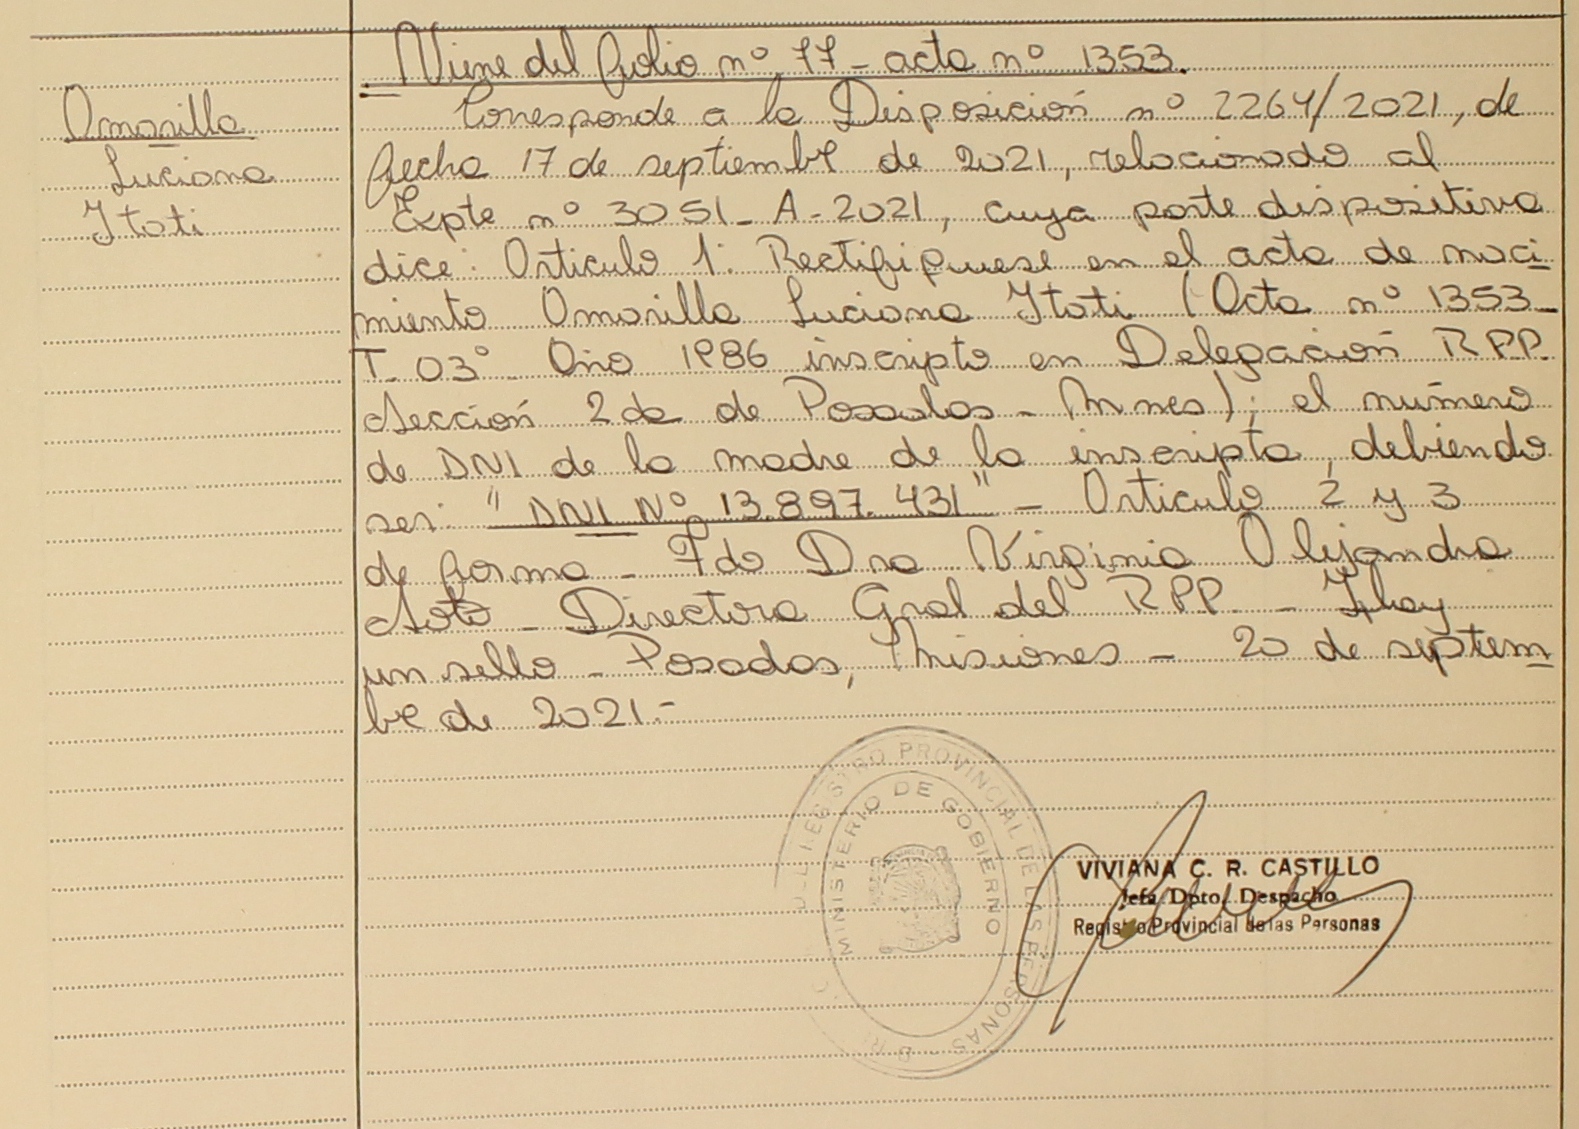 Viene del folio nº 77 - acta nº 1353.
Amarilla
Luciana
Itati
Corresponde a la Disposición nº 2264/2021, de
fecha 17 de septiembre de 2021, relacionado al
Expte nº 3051 - A - 2021, cuya parte dispositiva
dice: Articulo 1: Rectifiquese en el acta de naci
miento Amarilla Luciana Itati (Acta nº 1353 -
T. 03º Año 1986 inscripto en Delegación RPP.
Sección 2da de Posadas - Mnes); el número
de DNI de la madre de la inscripta, debiendo
ser: "DNI Nº 13.897.431" - Articulo 2 y 3
de forma - Fdo Dra Virginia Alejandra
Soto - Directora Gral del RPP. - Hay
un sello - Posadas, Misiones - 20 de septiem
bre de 2021.-
REGISTRO PROVINCIAL DE LAS PERSONAS
MINISTERIO DE GOBIERNO
VIVIANA C. R. CASTILLO
Jefa Dpto. Despacho
Registro Provincial de las Personas